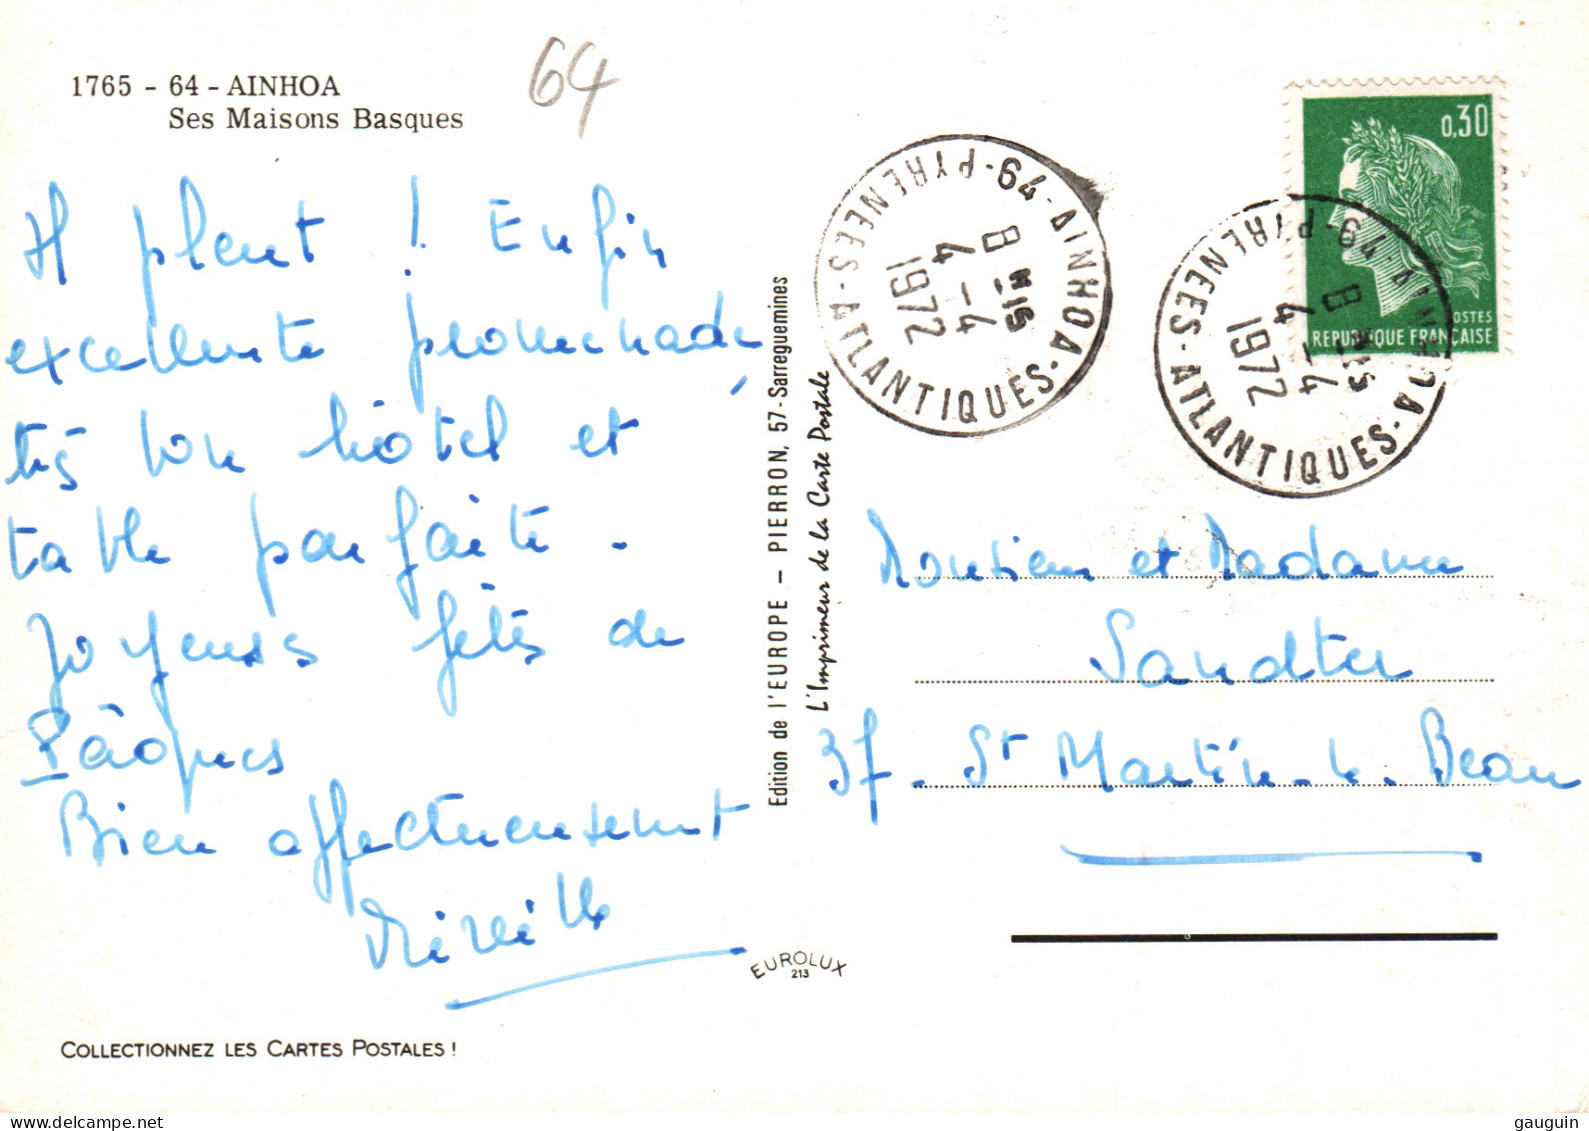 1765 - 64 - AINHOA
Ses Maisons Basques
64
Il pleut ! Enfin
excellente promenade
très bon hôtel et
table parfaite -
Joyeuses fêtes de
Pâques
Bien affectueusement
Mireille
COLLECTIONNEZ LES CARTES POSTALES !
Edition de l'EUROPE - PIERRON, 57-Sarreguemines
L'Imprimeur de la Carte Postale
EUROLUX
213
64-PYRENEES-ATLANTIQUES-AINHOA
8 H15
4-4
1972
0,30
POSTES
REPUBLIQUE FRANÇAISE
64-PYRENEES-ATLANTIQUES-AINHOA
8 H15
4-4
1972
Monsieur et Madame
37 - St Martin-le-Beau
delcampe.net
gauguin